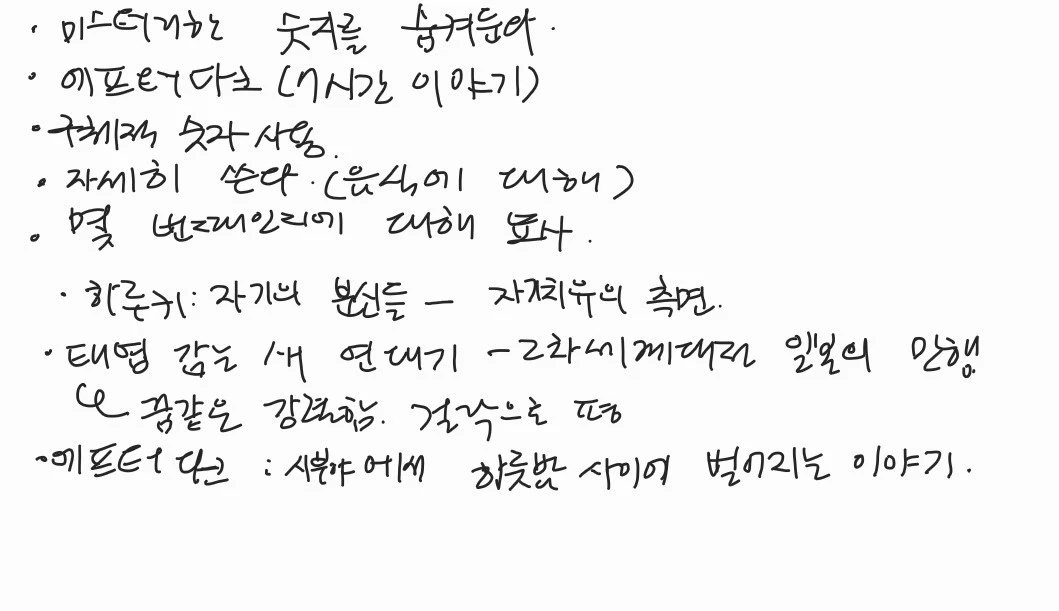 · 미스터리한 숫자를 숨겨둔다.
· 에프터 다크 (7시간 이야기)
· 구체적 숫자 사용.
· 자세히 쓴다. (음식에 대해)
· 몇 번 대해 묘사.
· 하루키: 자기의 분신들 – 자기치유의 측면.
· 태엽 감는 새 연대기 – 2차세계대전 일본의 만행
꿈같은 강렬함. 걸작으로 평
· 에프터 다크 : 시부야에서 하룻밤 사이에 벌어지는 이야기.